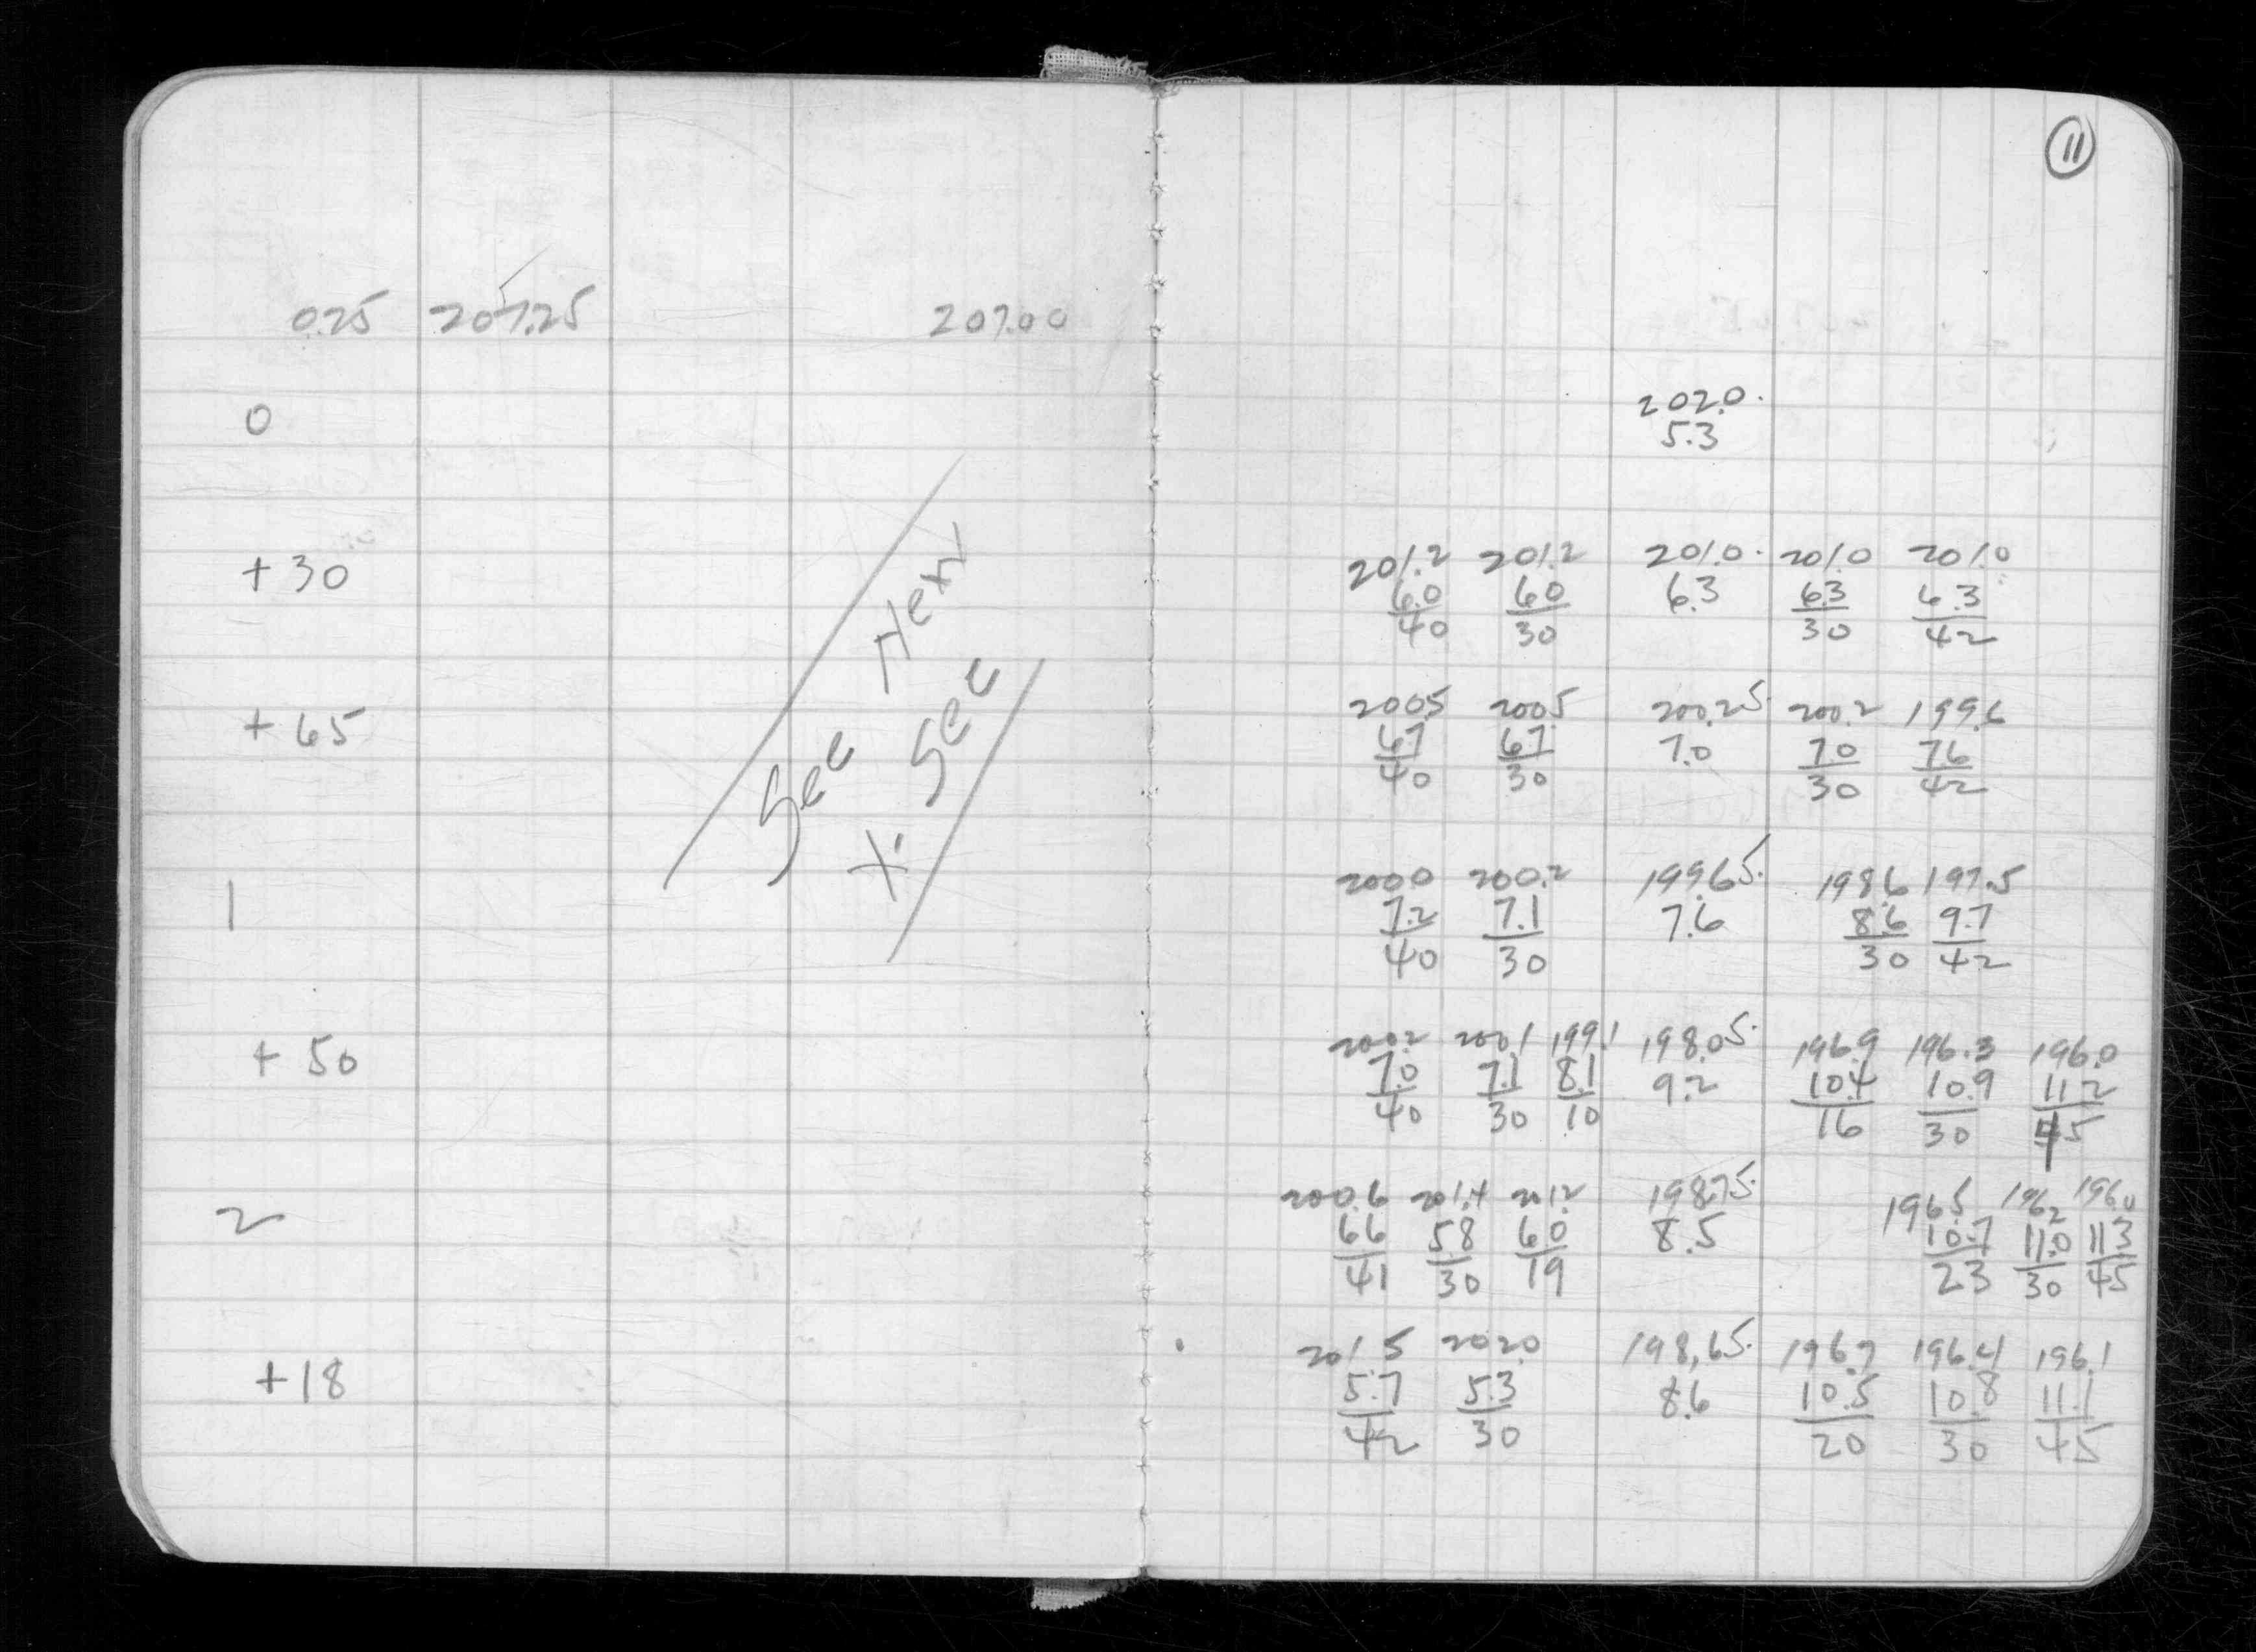 11
0.25 207.25 207.00
0 202.0
5.3
+ 30 201.2 201.2 201.0 201.0 201.0
6.0 6.0 6.3 6.3 6.3
40 30 30 42
+ 65 200.5 200.5 200.25 200.2 199.6
6.7 6.7 7.0 7.0 7.6
40 30 30 42
See Next
X. Sec
1 200.0 200.2 199.65 198.6 197.5
7.2 7.1 7.6 8.6 9.7
40 30 30 42
+ 50 200.2 200.1 199.1 198.05 196.9 196.3 196.0
7.0 7.1 8.1 9.2 10.4 10.9 11.2
40 30 10 16 30 45
2 200.6 201.4 201.2 198.75 196.5 196.2 196.0
6.6 5.8 6.0 8.5 10.7 11.0 11.3
41 30 19 23 30 45
+ 18 201.5 202.0 198.65 196.7 196.4 196.1
5.7 5.3 8.6 10.5 10.8 11.1
42 30 20 30 45